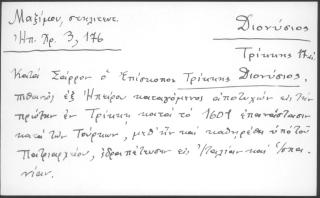 Μαξίμου, σεκλενσ.
Ἠπ. Χρ. 3, 176
Διονύσιος
Τρίκκης 17αι.
Κατὰ Σάρρον ὁ Ἐπίσκοπος Τρίκκης Διονύσιος,
πιθανῶς ἐξ Ἠπείρου καταγόμενος ἀποτυχὼν εἰς τὴν
πρώτην ἐν Τρίκκῃ κατὰ τὸ 1601 ἐπανάστασιν
κατὰ τῶν Τούρκων, μεθ' ἣν καὶ καθῃρέθη ὑπὸ τοῦ
Πατριαρχείου, ἐδραπέτευσεν εἰς Ἰταλίαν καὶ Ἱσπα-
νίαν.